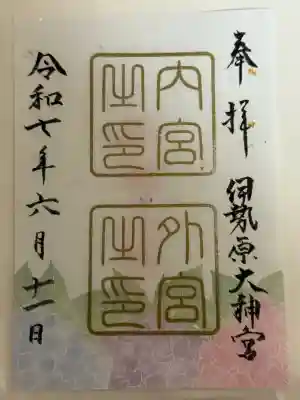 奉拝 伊勢原大神宮
内宮之印
外宮之印
令和七年六月十一日